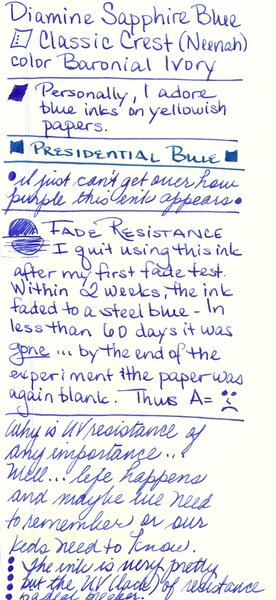 Diamine Sapphire Blue
Classic Crest (Neenah)
color Baronial Ivory
Personally, I adore
blue inks on yellowish
papers.
PRESIDENTIAL BLUE
• I just can't get over how
purple this ink appears •
FADE RESISTANCE
I quit using this ink
after my first fade test.
Within 2 weeks, the ink
faded to a steel blue - In
less than 60 days it was
gone ... by the end of the
experiment the paper was
again blank. Thus A= :(
Why is UV resistance of
any importance...?
Well... life happens
and maybe we need
to remember or our
kids need to know.
• The ink is very pretty
• but the UV (lack) of resistance